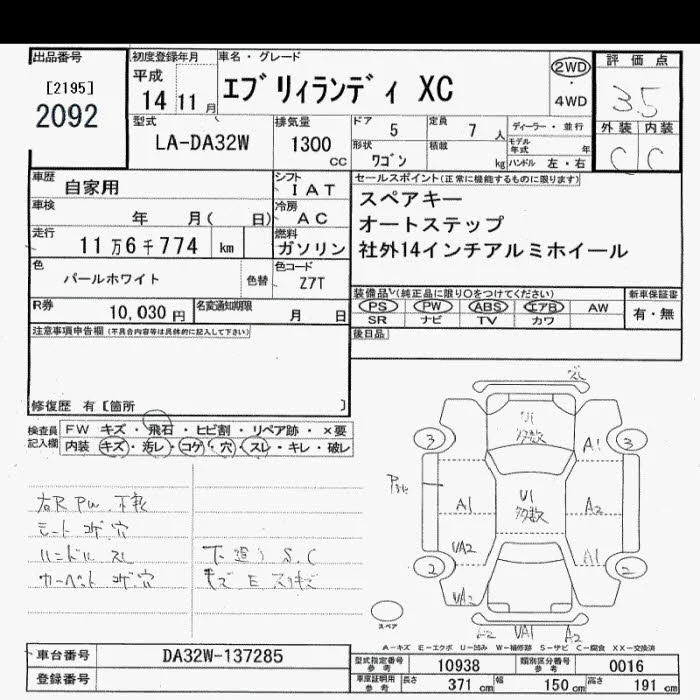 出品番号
[2195]
2092
初度登録年月
平成
14 11月
車名・グレード
エブリィランディ XC
2WD
・
4WD
評価点
3.5
外装 内装
C C
型式
LA-DA32W
排気量
1300
cc
ドア 5
定員 7 人
形状 ワゴン
積載 kg
ディーラー・並行
モデル年式 年
ハンドル 左・右
車歴 自家用
シフト IAT
車検 年 月( 日)
冷房 AC
走行 11万6千774 km
燃料 ガソリン
色 パールホワイト
色替
色コード Z7T
R券 10,030円
名変通知期限 月 日
セールスポイント(正常に機能するものに限ります)
スペアキー
オートステップ
社外14インチアルミホイール
装備品(純正品に限り○をつけてください)
PS PW ABS エアB AW
SR ナビ TV カワ
新車保証書
有・無
後日品
注意事項申告欄(不具合内容等は具体的に記入して下さい)
修復歴 有[箇所 ]
検査員記入欄
FW キズ・飛石・ヒビ割・リペア跡・×要
内装 キズ・汚レ・コゲ・穴・スレ・キレ・破レ
右R PW 不良
シート コゲ 穴
ハンドル スレ
カーペット コゲ 穴
下廻り S.C
スレ
U1
多数
3
3
A1
U1
多数
A1
A2
UA2
A1
2
2
UA2
UA1
A2
スペア
A-キズ E-エクボ U-凹み W-補修跡 S-サビ C-腐食 XX-交換済
車台番号 DA32W-137285
登録番号
型式指定番号 参考 10938
類別区分番号 参考 0016
車庫証明用 参考
長さ 371 cm
幅 150 cm
高さ 191 cm